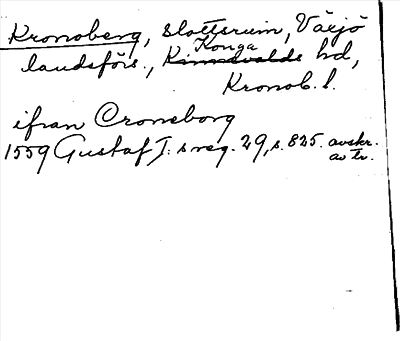 Kronoberg, slottsruin, Växjö
landsförs., Konga ~~Kinnevalds~~ hd,
Kronob. l.
ifran Croneborg
1559 Gustaf I:s reg. 29, s. 825. avskr.
av tr.